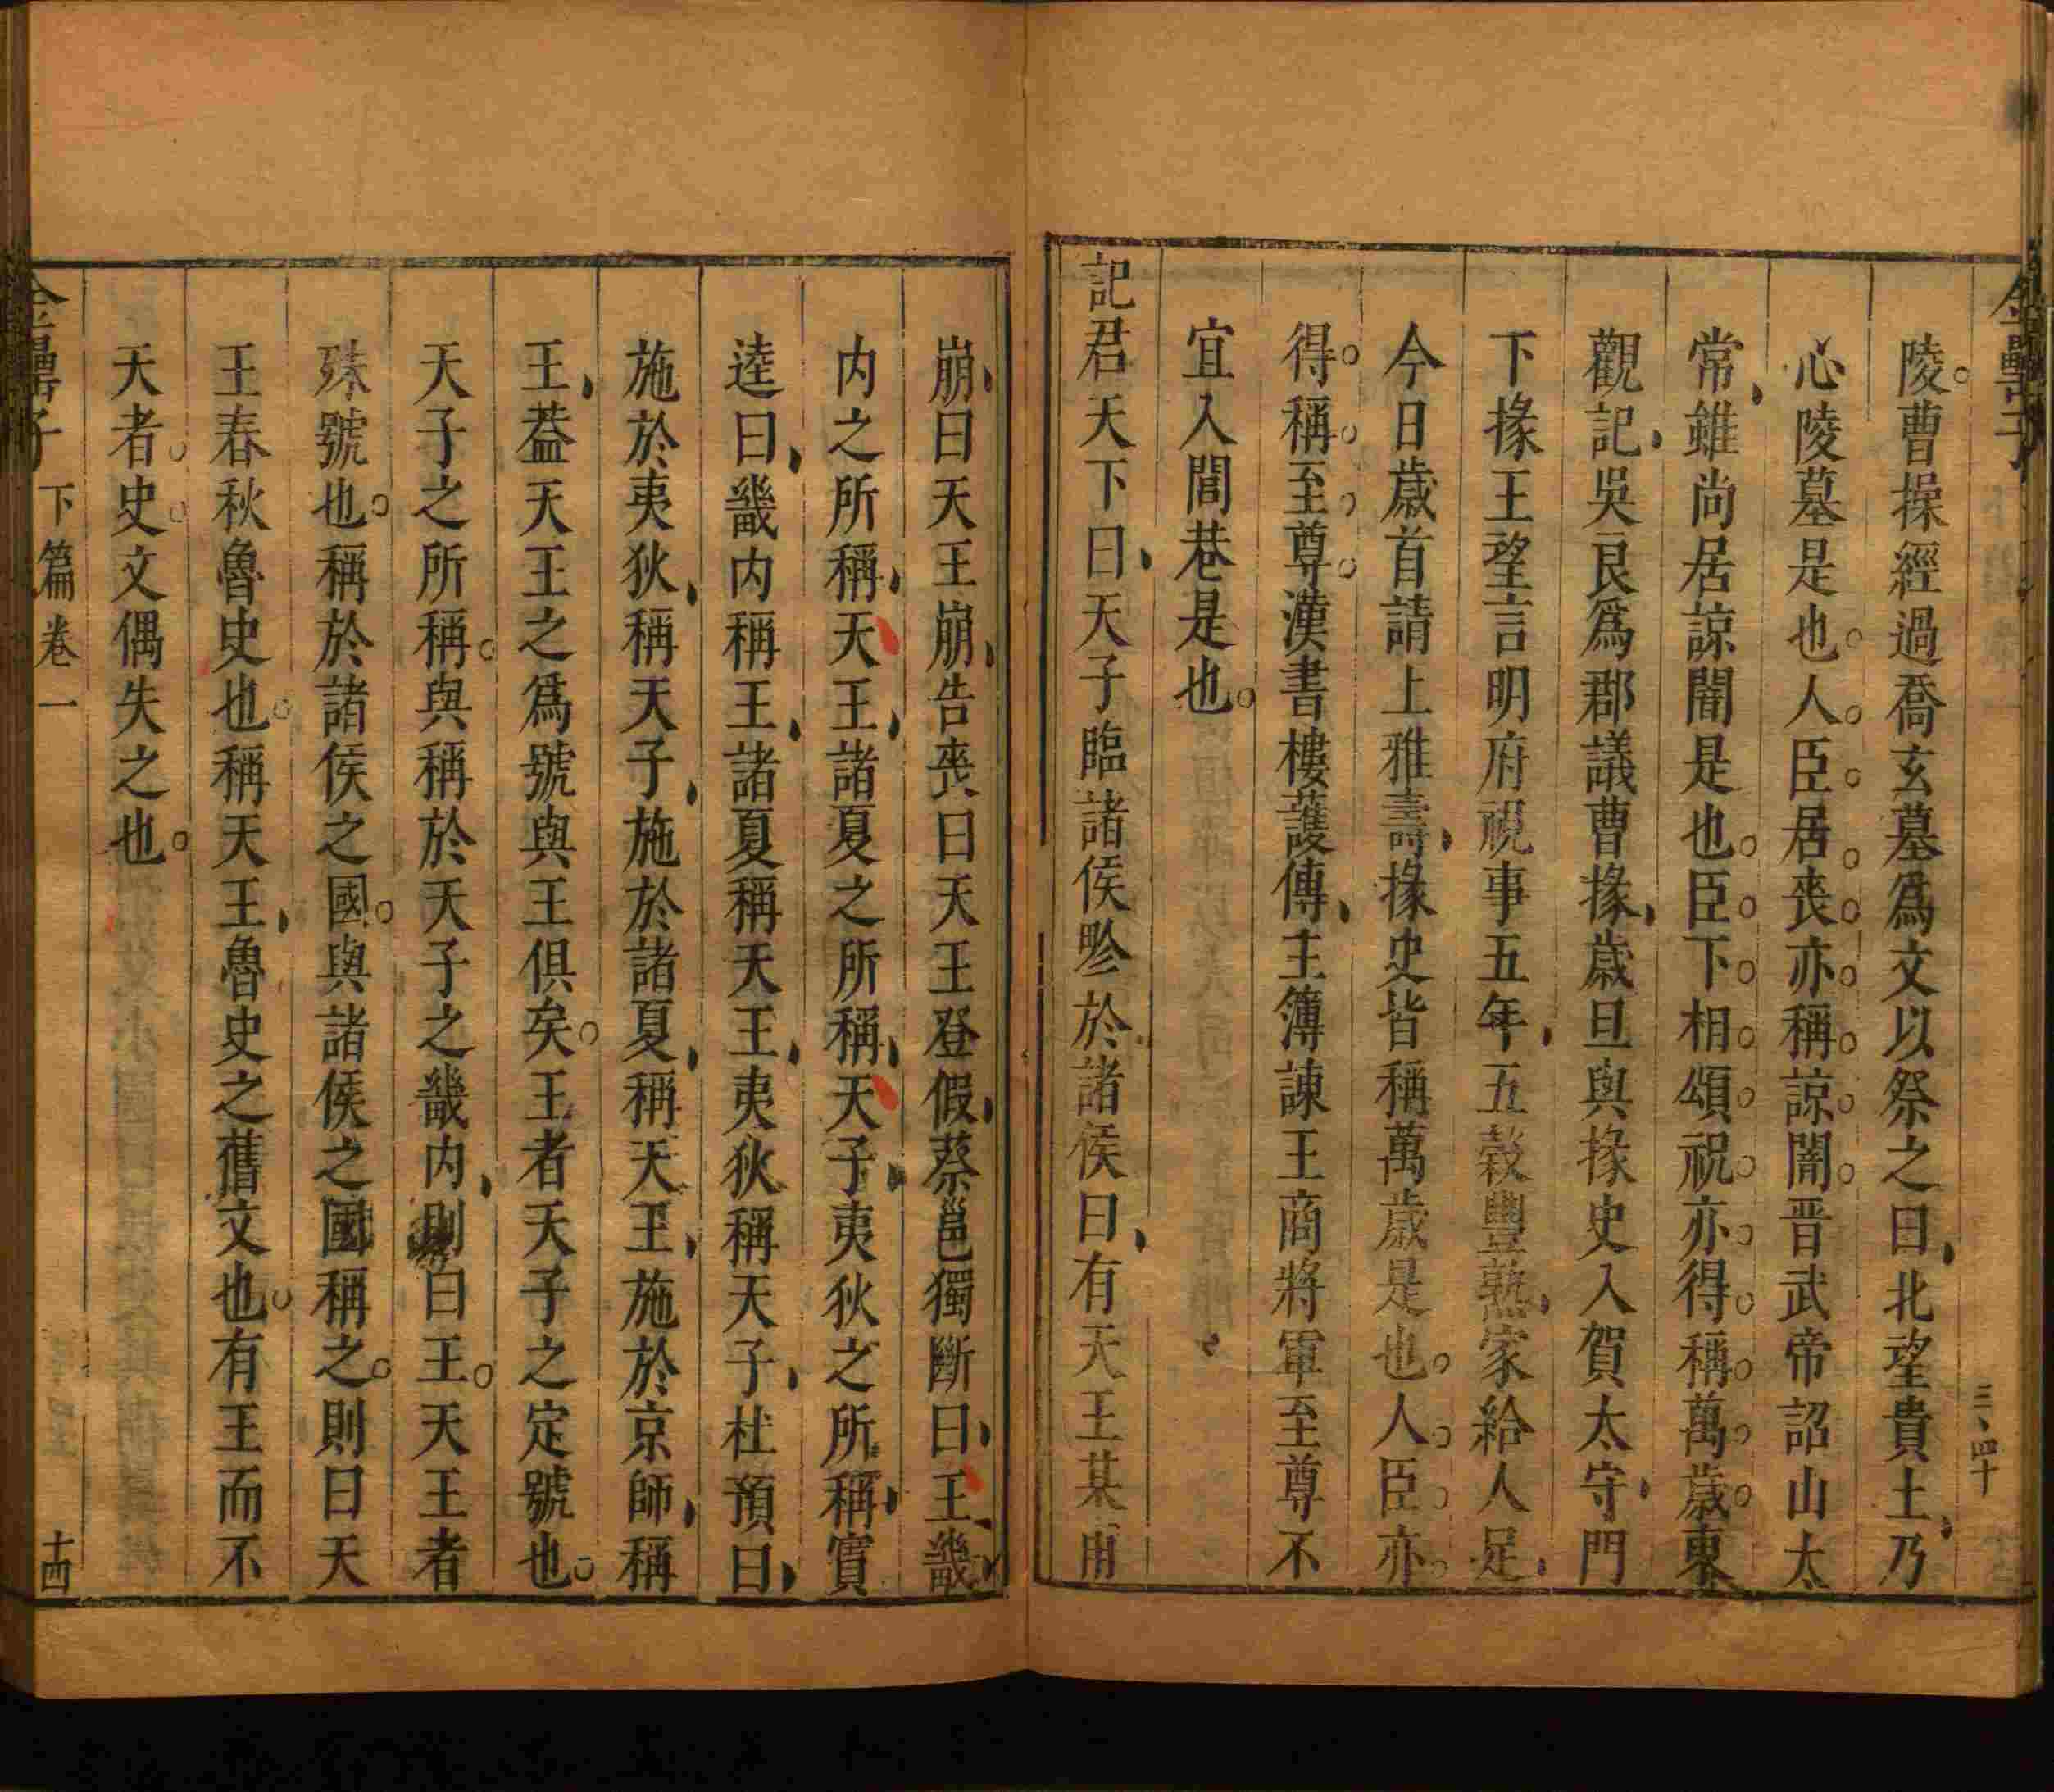 金罍子
三、四十
陵曹操經過喬玄墓爲文以祭之曰北望貴土乃
心陵墓是也人臣居喪亦稱諒闇晋武帝詔山太
常雖尚居諒闇是也臣下相頌祝亦得稱萬歲東
觀記吳良爲郡議曹掾歲旦與掾史入賀太守門
下掾王望言明府視事五年五穀豐熟家給人足
今日歲首請上雅壽掾史皆稱萬歲是也人臣亦
得稱至尊漢書樓護傳主簿諫王商將軍至尊不
宜入閭巷是也
記君天下曰天子臨諸侯畛於諸侯曰有天王某甫
崩曰天王崩告喪曰天王登假蔡邕獨斷曰王畿
内之所稱天王諸夏之所稱天子夷狄之所稱賈
逵曰畿内稱王諸夏稱天王夷狄稱天子杜預曰
施於夷狄稱天子施於諸夏稱天王施於京師稱
王葢天王之爲號與王俱矣王者天子之定號也
天子之所稱與稱於天子之畿内則曰王天王者
殊號也稱於諸侯之國與諸侯之國稱之則曰天
王春秋魯史也稱天王魯史之舊文也有王而不
天者史文偶失之也
金罍子 下篇卷一 十四